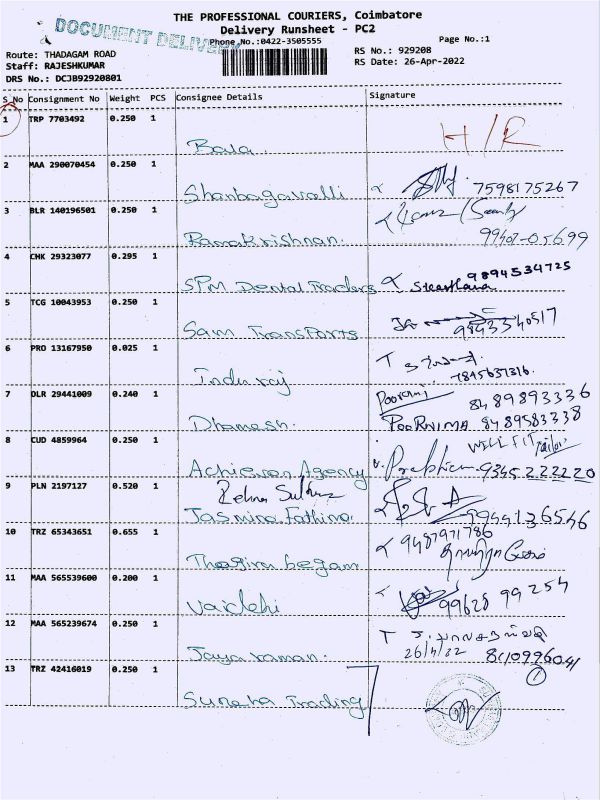 THE PROFESSIONAL COURIERS, Coimbatore
DOCUMENT DELIVERY
Delivery Runsheet - PC2
Phone No.:0422-3505555
Page No.:1
Route: THADAGAM ROAD
RS No.: 929208
Staff: RAJESHKUMAR
RS Date: 26-Apr-2022
DRS No.: DCJB92920801
S No Consignment No Weight PCS Consignee Details Signature
1 TRP 7703492 0.250 1
Bala H/R
2 MAA 290070454 0.250 1
Shanbagavalli 7598175267
3 BLR 140196501 0.250 1
Ramakrishnan. 99407-05699
4 CHK 29323077 0.295 1
9894534725
SPM Dental Traders
5 TCG 10043953 0.250 1
Sam Transports 9843340517
6 PRO 13167950 0.025 1
Induraj 7845637316.
7 DLR 29441009 0.240 1
8489893336
Dhanesh. POORNIMA 8489583338
8 CUD 4859964 0.250 1
WELL FIT
Achiever Agency 9345222220
9 PLN 2197127 0.520 1
Jasmine Fathima 9944136546
10 TRZ 65343651 0.655 1
9487971786
begam
11 MAA 565539600 0.200 1
Vaidehi 99628 99254
12 MAA 565239674 0.250 1
Jayaraman. 26/4/22 8110996041
13 TRZ 42416019 0.250 1
1
Suneha Trading